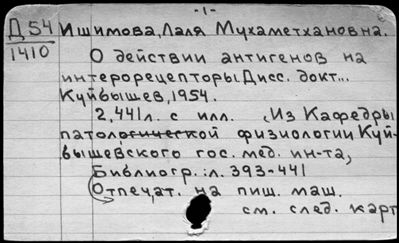 -1-
Д 54 Ишимова, Лаля Мухаметхановна.
1410
О действии антигенов на
интерорецепторы Дисс. докт...
Куйбышев, 1954.
2,441л. с илл. (Из Кафедры
патологической физиологии Куй-
бышевского гос. мед. ин-та,
Библиогр.: л. 393-441
Отпечат. на пиш. маш.
см. след. карт